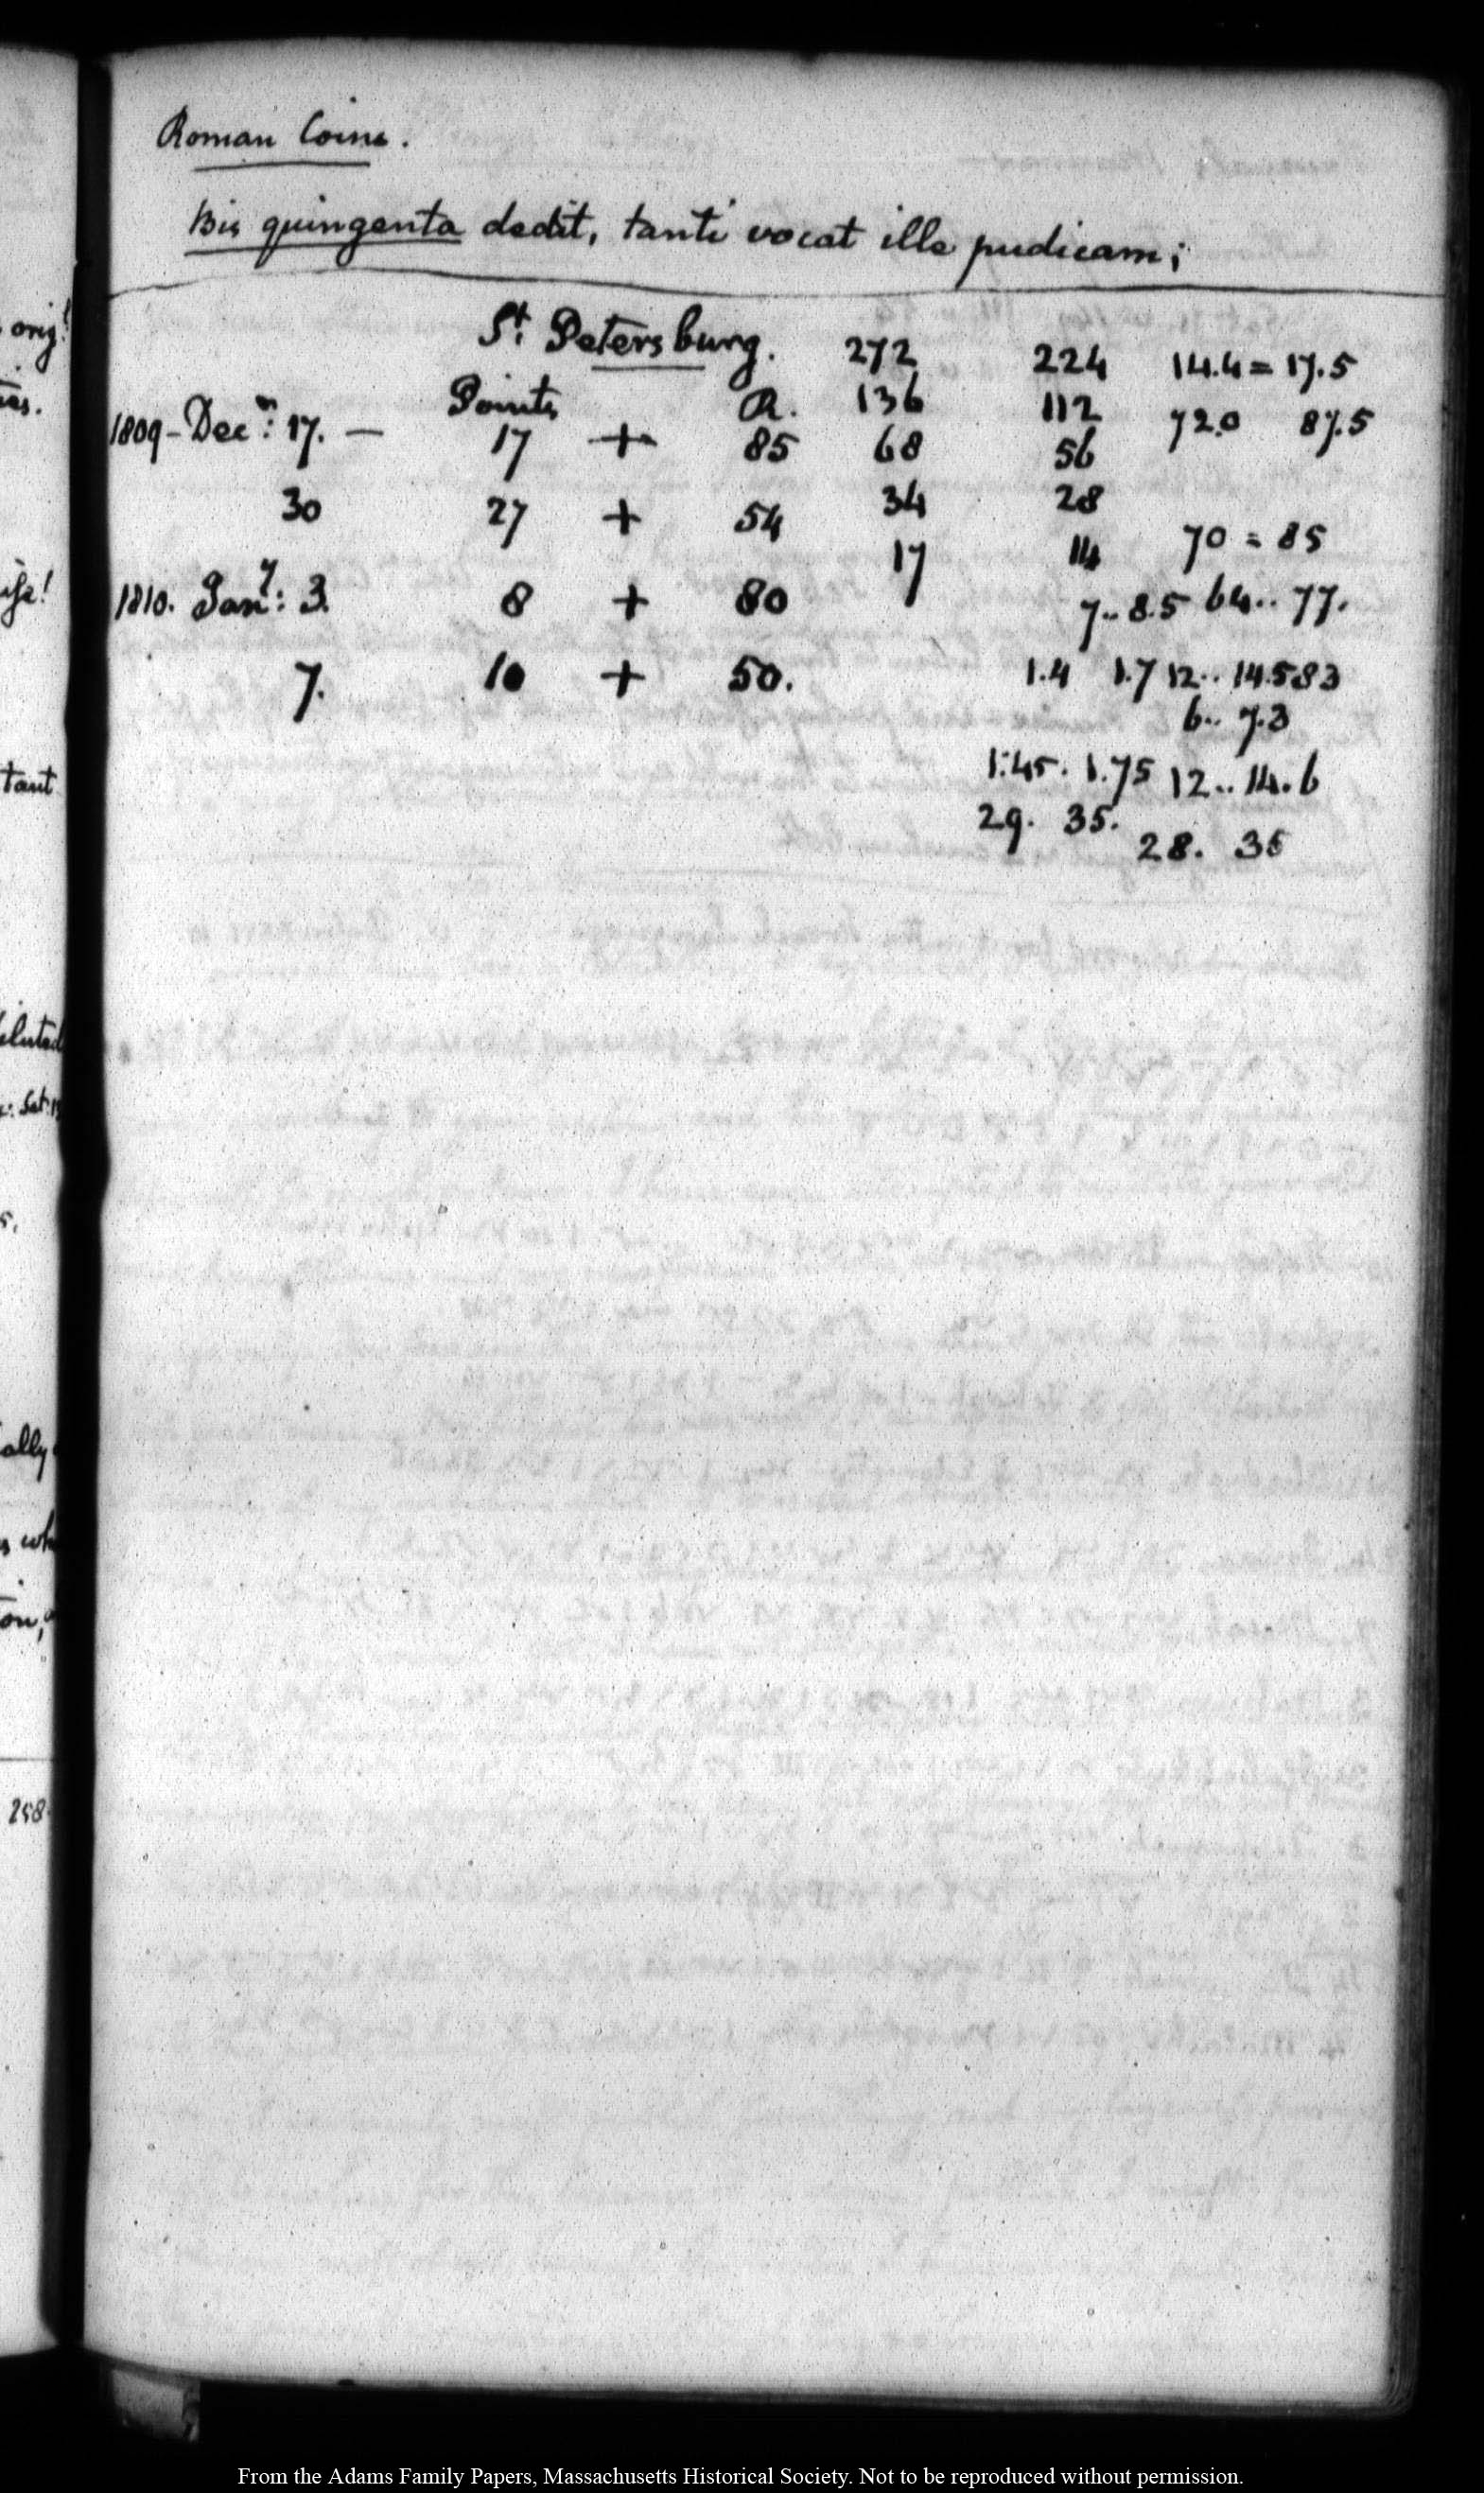 Roman Coins.
Bis quingenta dedit, tanti vocat ille pudicam;
St Petersburg. 272 224 14.4 = 17.5
Points R. 136 112 72.0 87.5
1809 - Decr: 17. — 17 + 85 68 56
30 27 + 54 34 28
17 14 70 = 85
1810. Jany: 3. 8 + 80 7.. 8.5 64.. 77.
7. 10 + 50. 1.4 1.7 12.. 14.583
6.. 7.3
1.45. 1.75 12.. 14.6
29. 35.
28. 35
orig!
tant
Sat:
ally
258
From the Adams Family Papers, Massachusetts Historical Society. Not to be reproduced without permission.